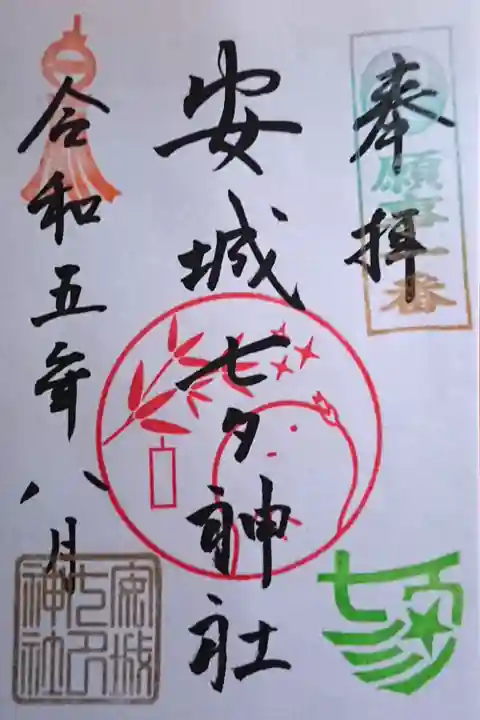 奉拝
願事一番
安城七夕神社
令和五年八月
安城
七夕
神社
七夕